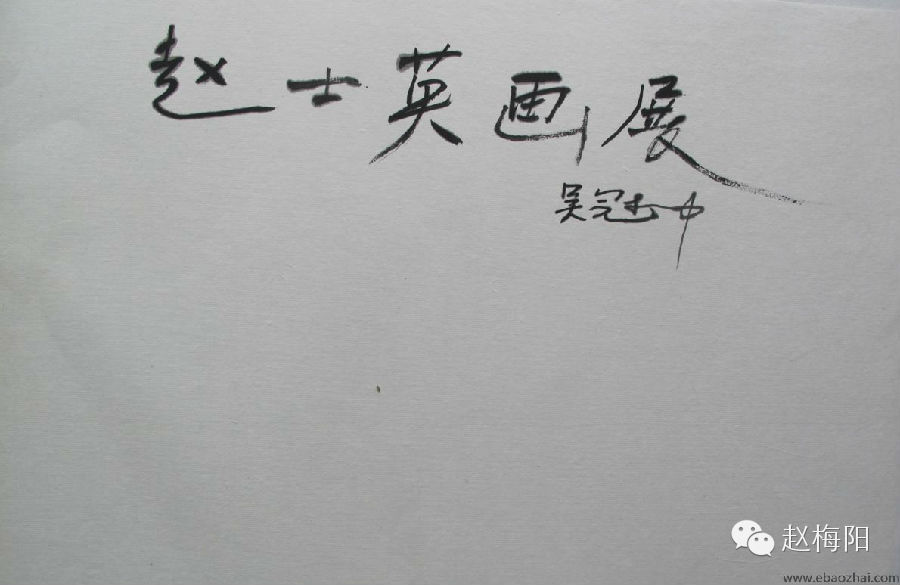 赵士英画展
吴冠中
赵梅阳
www.ebaozhai.com